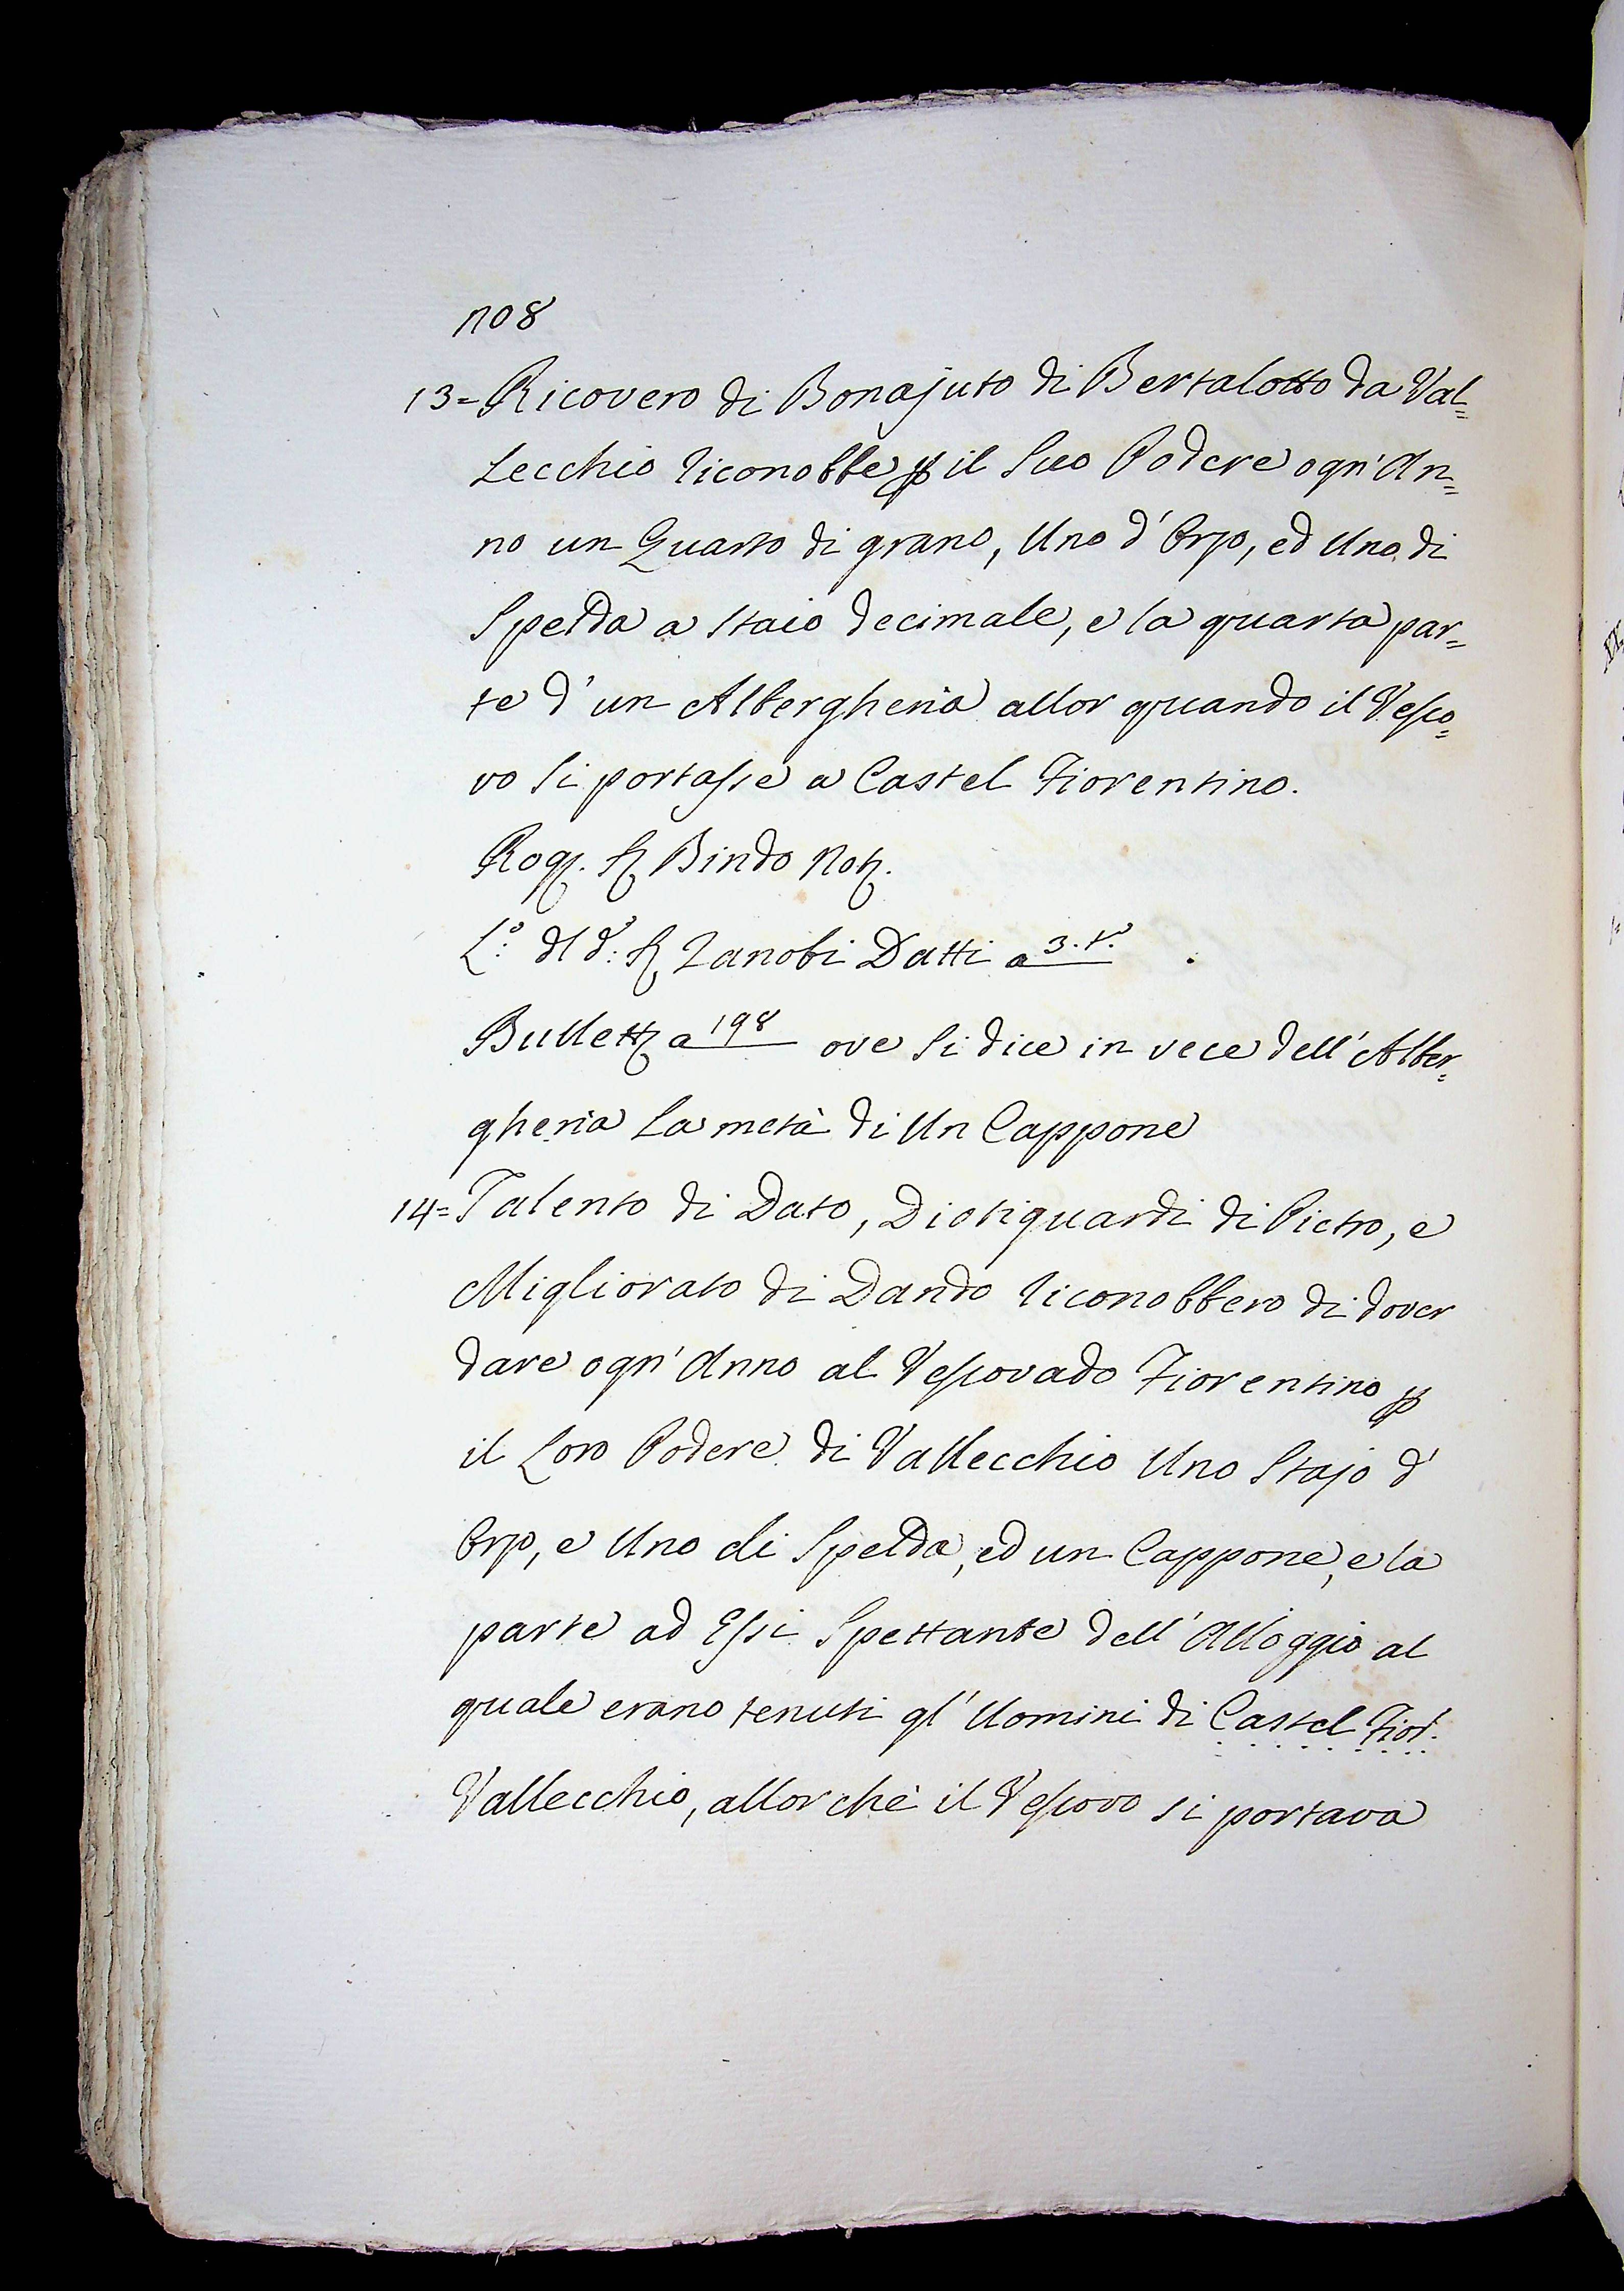 1108
13= Ricovero di Bonajuto di Bertalotto da Val=
lecchio riconobbe p il suo Podere ogn'An=
no un Quarto di grano, Uno d'Orzo, ed Uno di
Spelda a staio decimale, e la quarta par=
te d'un Albergheria allor quando il Vesco=
vo si portasse a Castel Fiorentino.
Rog. Sr Bindo Not.
L.º dl d.º Sr Zanobi Datti a 3. t.º
Bullett. a 198 ove si dice in vece dell'Alber=
gheria la metà di Un Cappone
14= Talento di Dato, Diotiguardi di Pietro, e
Migliorato di Dando riconobbero di dover
dare ogn'Anno al Vescovado Fiorentino p
il Loro Podere di Vallecchio Uno Stajo d'
Orzo, e Uno di Spelda, ed un Cappone, e la
parte ad Essi Spettante dell'Alloggio al
quale erano tenuti gl'Uomini di Castel Fior.
Vallecchio, allorchè il Vescovo si portava